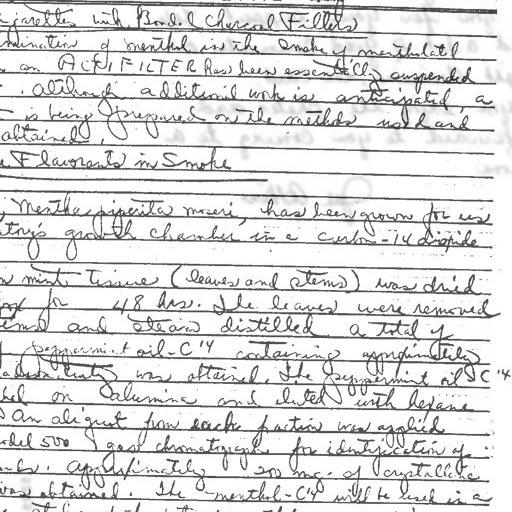 igarettes with Bonded Charcoal Filters
mination of menthol in the smoke of mentholated
an ACTIFILTER has been essentially suspended
. although additional work is anticipated, a
is being prepared on the methods used and
obtained.
e Flavorants in Smoke
, Mentha piperita moseri, has been grown for us
atory's growth chamber in a carbon-14 dioxide
mint tissue (leaves and stems) was dried
for 48 hrs. The leaves were removed
stems and steam distilled a total of
peppermint oil-C14 containing approximately
was obtained. The peppermint oil-C14
on alumina and eluted with hexane
An aliquot from each fraction was applied
odel 500 gas chromatograph for identification of
. Approximately 200 mg. of crystalline
was obtained. The menthol-C14 will be used in a